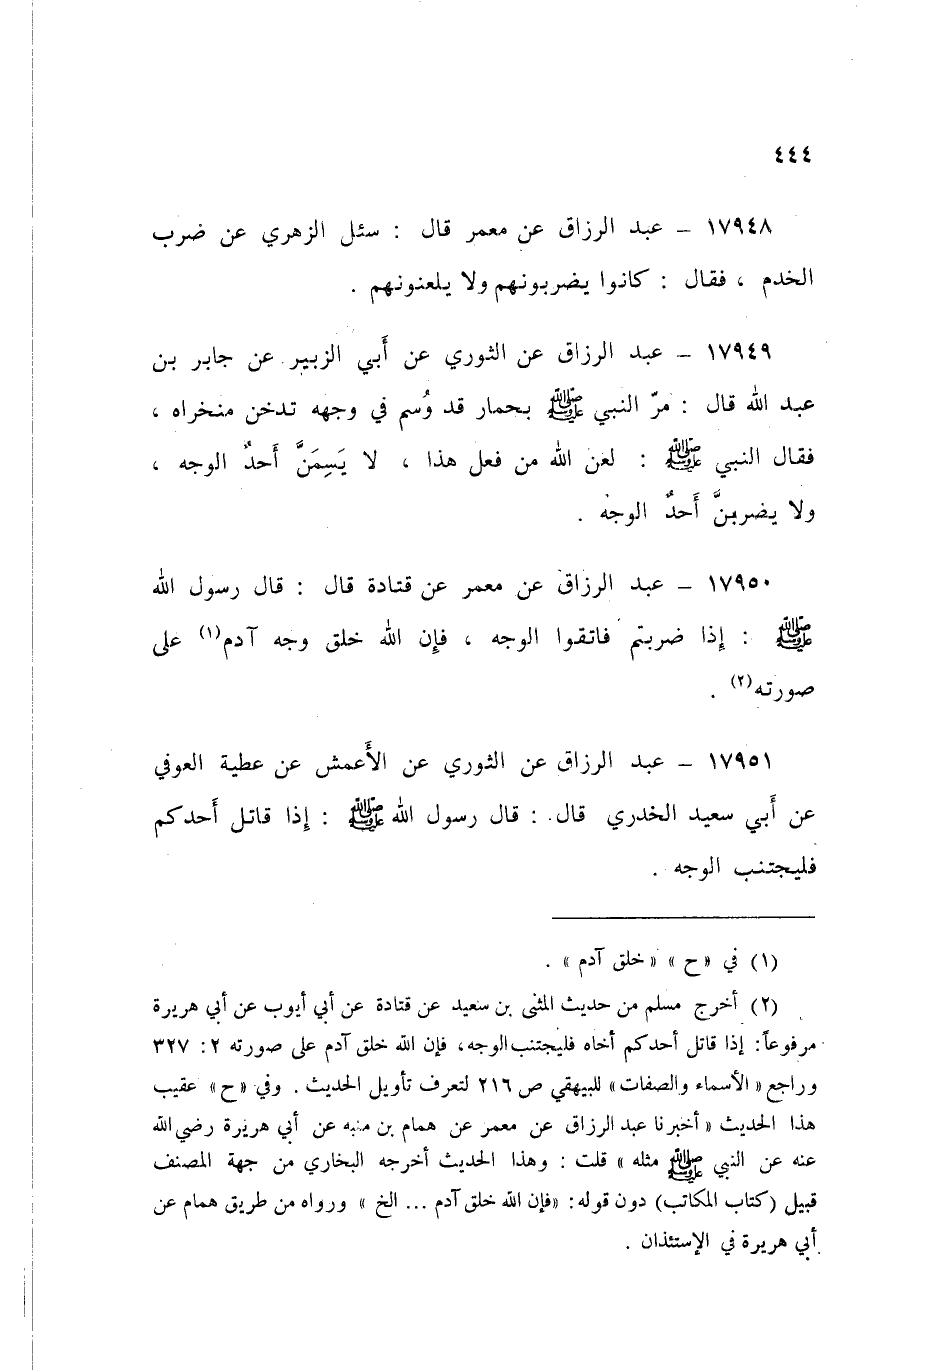 ٤٤٤
١٧٩٤٨ – عبد الرزاق عن معمر قال : سئل الزهري عن ضرب
الخدم ، فقال : كانوا يضربونهم ولا يلعنونهم .
١٧٩٤٩ – عبد الرزاق عن الثوري عن أَبي الزبير عن جابر بن
عبد الله قال : مرّ النبي ﷺ بحمار قد وُسم في وجهه تدخن منخراه ،
فقال النبي ﷺ : لعن الله من فعل هذا ، لا يَسِمَنَّ أَحدٌ الوجه ،
ولا يضربنَّ أَحدٌ الوجه .
١٧٩٥٠ – عبد الرزاق عن معمر عن قتادة قال : قال رسول الله
ﷺ : إِذا ضربتم فاتقوا الوجه ، فإِن الله خلق وجه آدم(١) على
صورته(٢) .
١٧٩٥١ – عبد الرزاق عن الثوري عن الأَعمش عن عطية العوفي
عن أَبي سعيد الخدري قال : قال رسول الله ﷺ : إِذا قاتل أَحدكم
فليجتنب الوجه .
(١) في «ح» «خلق آدم» .
(٢) أخرج مسلم من حديث المثنى بن سعيد عن قتادة عن أبي أيوب عن أبي هريرة
مرفوعاً: إذا قاتل أحدكم أخاه فليجتنب الوجه، فإن الله خلق آدم على صورته ٢: ٣٢٧
وراجع «الأسماء والصفات» للبيهقي ص ٢١٦ لتعرف تأويل الحديث . وفي «ح» عقيب
هذا الحديث «أخبرنا عبد الرزاق عن معمر عن همام بن منبه عن أبي هريرة رضي الله
عنه عن النبي ﷺ مثله» قلت : وهذا الحديث أخرجه البخاري من جهة المصنف
قبيل (كتاب المكاتب) دون قوله: «فإن الله خلق آدم ... الخ» ورواه من طريق همام عن
أبي هريرة في الإستئذان .